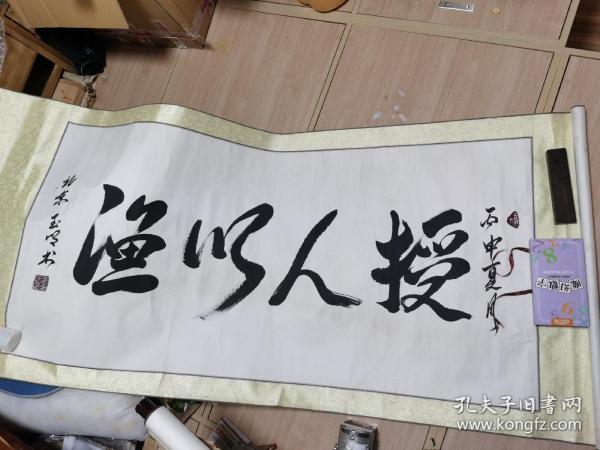 丙申夏月
授人以渔
北京
孔夫子旧书网
www.kongfz.com